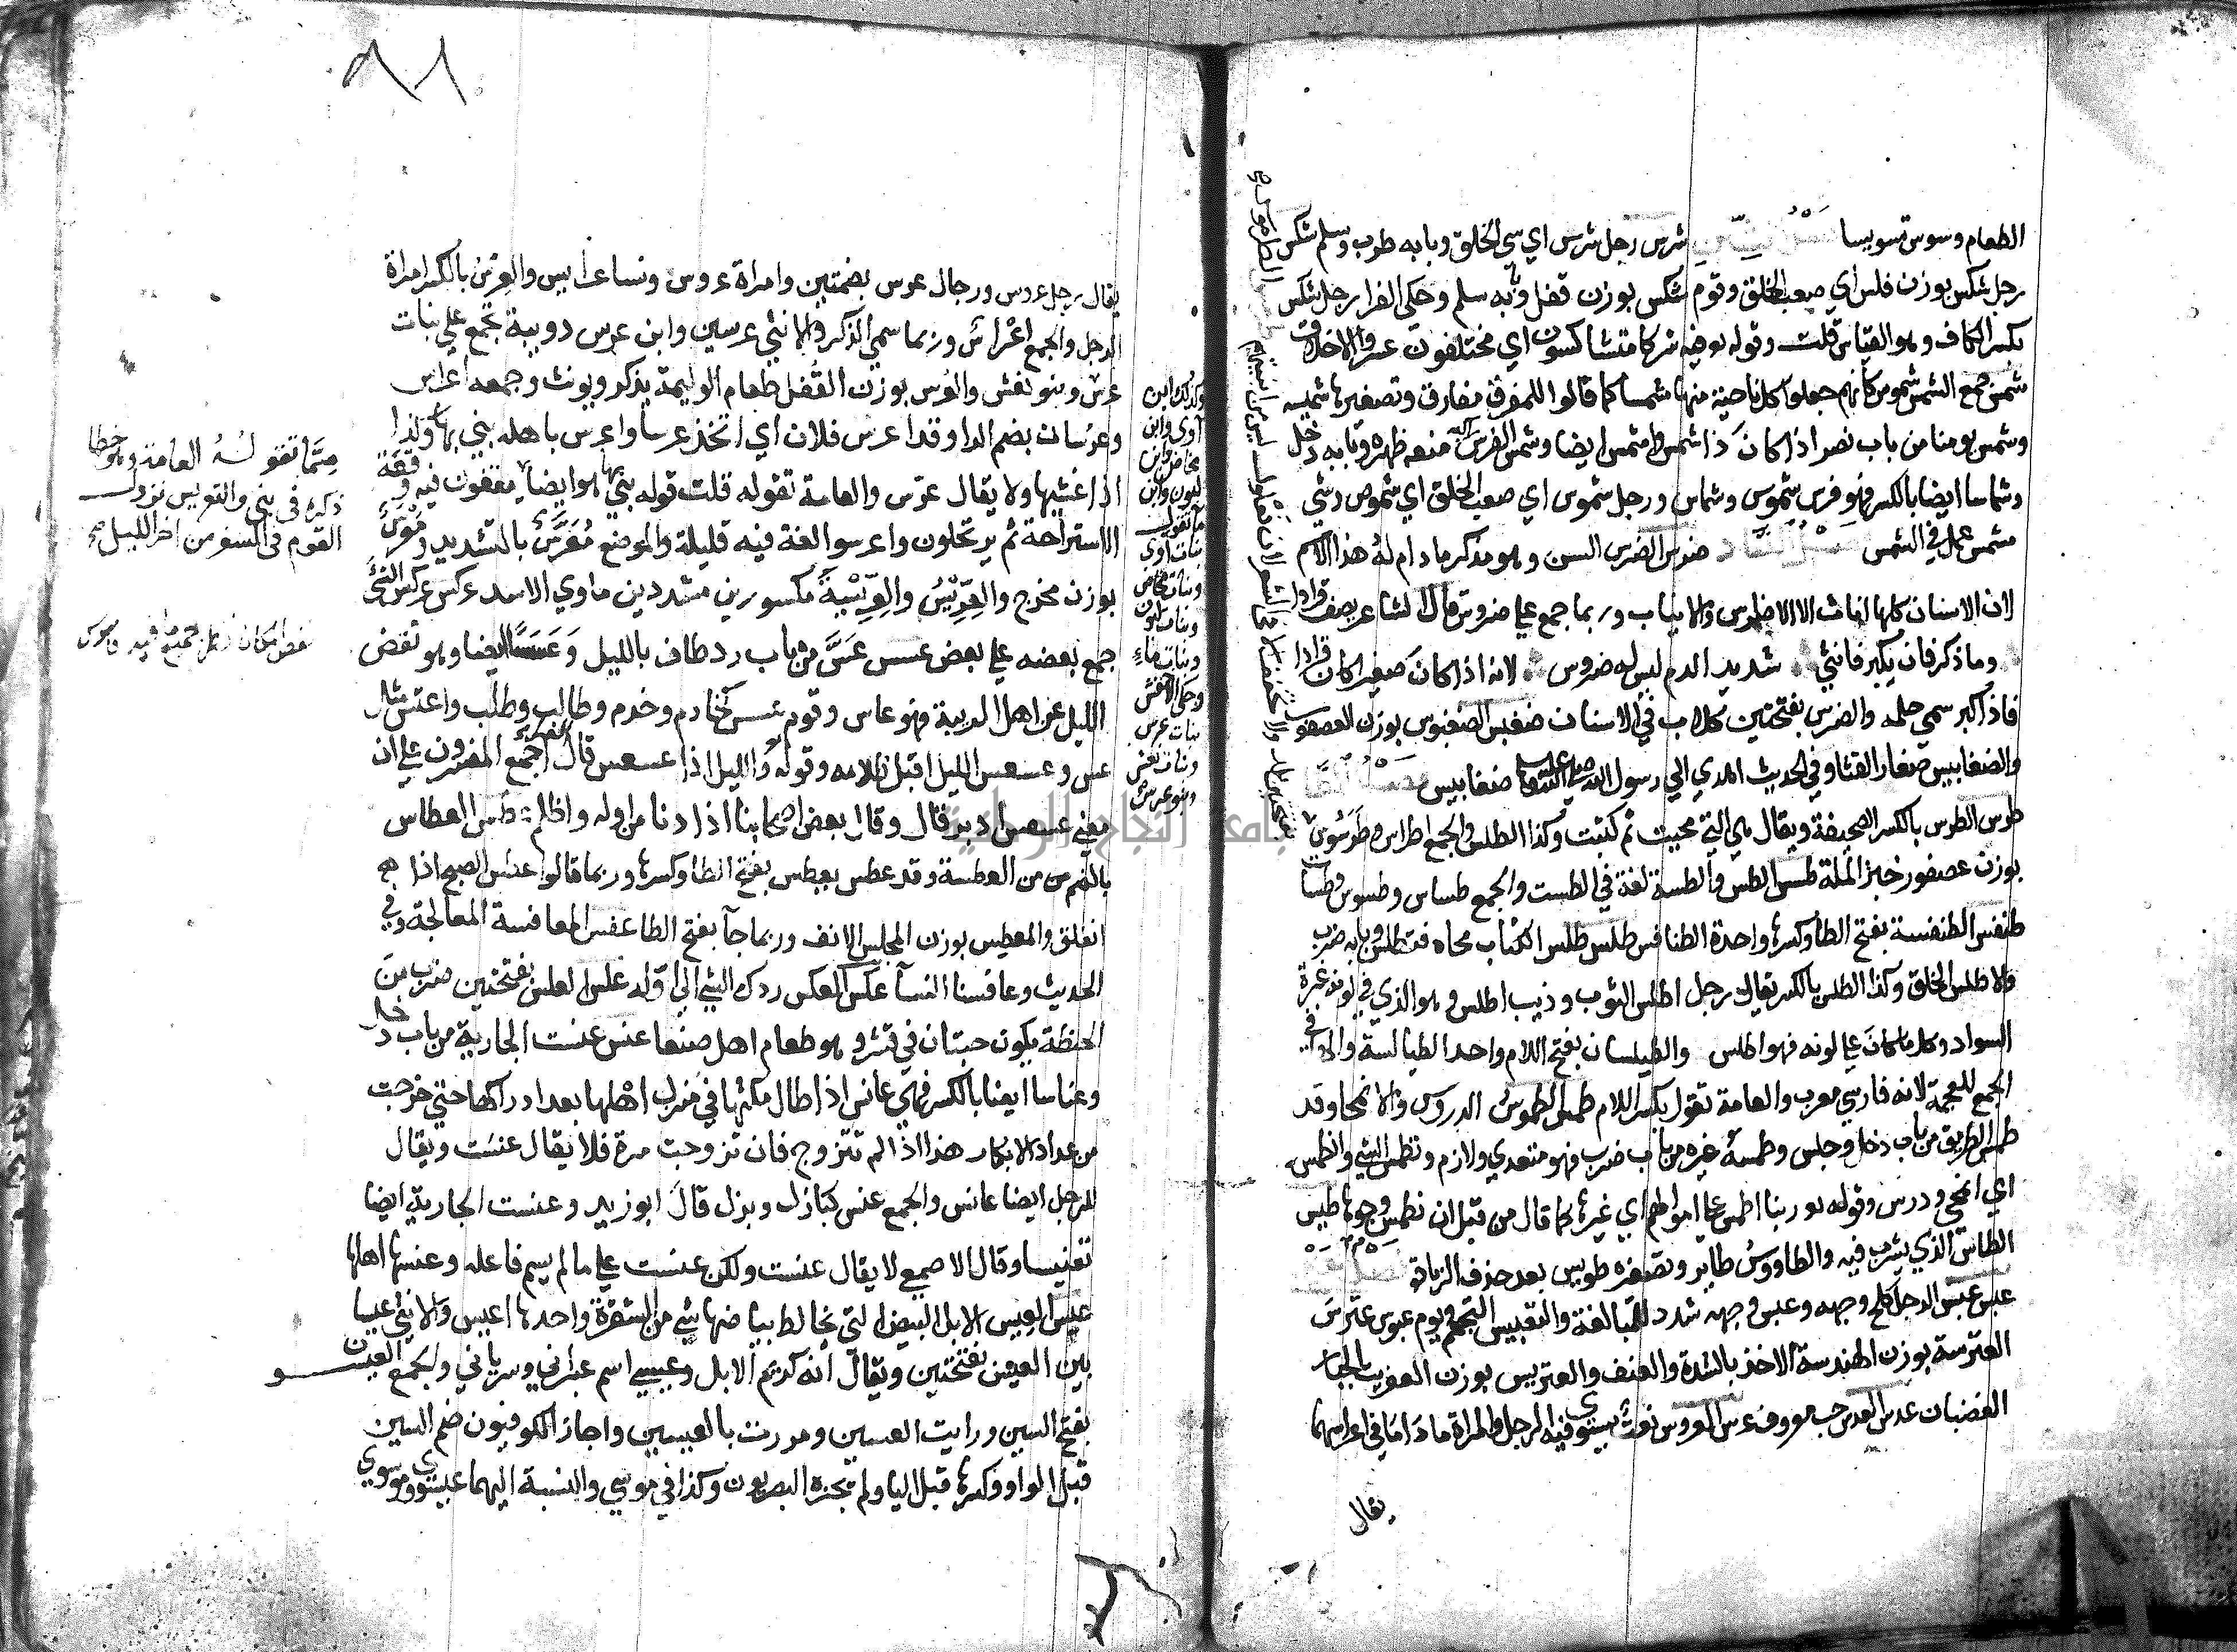 الطعام وسوس تسويسا شرس رجل شرس اي سي الخلق وبابه طرب وسلم شكس
رجل شكس بوزن فلس اي صعب الخلق وقوم شكس بوزن قفل وبابه سلم وحكى الفرا رجل شكس
بكسر الكاف وهو القياس قلت وقوله تع فيه شركا متشاكسون اي مختلفون عسروا الاخلاق
شمس جمع الشمس شموس كانهم جعلوا كل ناحية منها شمسا كما قالوا للمفرق مفارق وتصغيرها شميسه
وشمس يومنا من باب نصر اذا كان ذا شمس واشمس ايضا وشمس الفرس منعه ظهره وبابه دخل
وشماسا ايضا بالكسر فهو فرس شموس وشماس ورجل شموس اي صعب الخلق اي شموص وشي
مشمس عمل في الشمس ضرس الضرس السن وهو مذكر مادام له هذا الاسم
لان الاسنان كلها اناث الا الاضراس والانياب وربما جمع علي ضروس قال الشاعر يصف قرادا
وما ذكر فان يكبر فانثي شديد الدم ليس له ضروس لانه اذا كان صغيرا كان قرادا
فاذا كبر سمي حلمه والضرس بفتحتين كلال في الاسنان ضغبس الضغبوس بوزن العصفور
والضغابيس صغار القثا وفي الحديث اهدي الي رسول الله صلى الله عليه وسلم ضغابيس
طرس الطرس بالكسر الصحيفة ويقال هي التي محيت ثم كتبت وكذا الطلس والجمع اطراس وطرسوس
بوزن عصفور خبز الملة طسس الطس والطسة لغة في الطست والجمع طساس وطسوس وطسات
طنفس الطنفسة بفتح الطا وكسرها واحدة الطنافس طلس طلس الكتاب محاه فتطلس وبابه ضرب
والاطلس الخلق وكذا الطلس بالكسر يقال رجل اطلس الثوب وذيب اطلس وهو الذي في لونه غبرة
السواد وكل ما كان علي لونه فهو اطلس والطيلسان بفتح اللام واحد الطيالسة والها في
الجمع للعجمة لانه فارسي معرب والعامة تقول بكسر اللام طمس الطموس الدروس والانمحا وقد
طمس الطريق من باب دخل وجلس وطمسه غيره من باب ضرب فهو متعدي ولازم وتطمس الشي وانطمس
اي انمحي ودرس وقوله تع ربنا اطمس علي اموالهم اي غيرها كما قال من قبل ان نطمس وجوها طيس
الطاس الذي يشرب فيه والطاووس طاير وتصغيره طويس بعد حذف الزيادة
عبس عبس الرجل كلح وجهه وعبس وجهه شدد للمبالغة والتعبيس التجهم ويوم عبوس عترس
العترسة بوزن الهندسة الاخذ بالشدة والعنف والعتريس بوزن العفريت الجبار
الغضبان عدس العدس حب معروف عرس العروس نعت يستوي فيه الرجل والمراة ما داما في اعراسهما
يقال
يقال رجل عروس ورجال عرس بضمتين وامراة عروس ونسا عرايس والعرس بالكسر امراة
الرجل والجمع اعراس وربما سمي الذكر والانثي عرسين وابن عرس دويبة تجمع علي بنات
عرس وبنو نعش والعرس بوزن القفل طعام الوليمة يذكر ويونث وجمعه اعراس
وعرسان بضم الرا وقد اعرس فلان اي اتخذ عرسا واعرس باهله بني بها وكذا
اذا غشيها ولا يقال عرس والعامة تقوله قلت قوله بني بها هو ايضا يقفون فيه وقفة
الاستراحة ثم يرتحلون واعرسوا لغة فيه قليلة والموضع معرس بالتشديد ومعرس
بوزن مخرج والعريس والعريسة مكسورين مشددين ماوي الاسد عركس عركس الشي
جمع بعضه علي بعض عسس عس من باب رد طاف بالليل وعسسا ايضا وهو نفض
الليل عن اهل الريبة فهو عاس وقوم عسس كخادم وخدم وطالب وطلب واعتس مثل
عس وعسعس الليل اقبل ظلامه وقوله تع والليل اذا عسعس قال الفرا اجمع المفسرون علي ان
معني عسعس ادبر قال وقال بعض اصحابنا اذا دنا من اوله واظلم عطس العطاس
بالضم من العطسة وقد عطس يعطس بفتح الطا وكسرها وربما قالوا عطس الصبح اذا
انفلق والمعطس بوزن المجلس الانف وربما جآ بفتح الطا عفس المعافسة المعالجة وفي
الحديث وعافسنا النسآ عكس العكس ردك الشي الي اوله علس العلس بفتحتين ضرب من
الحنطة يكون حبتان في قشر وهو طعام اهل صنعا عنس عنست الجارية من باب دخل
وعناسا ايضا بالكسر فهي عانس اذا طال مكثها في منزل اهلها بعد ادراكها حتي خرجت
من عداد الابكار هذا اذا لم تتزوج فان تزوجت مرة فلا يقال عنست ويقال
للرجل ايضا عانس والجمع عنس كبازل وبزل قال ابو زيد وعنست الجارية ايضا
تعنيسا وقال الاصمعي لا يقال عنست ولكن عنست علي ما لم يسم فاعله وعنسها اهلها
عيس العيس الابل البيض التي يخالط بياضها شي من الشقرة واحدها اعيس والانثي عيسا
بين العيس بفتحتين ويقال انه كريم الابل وعيسي اسم عبراني وسرياني والجمع العيسون
بفتح السين ورايت العيسين ومررت بالعيسين واجاز الكوفيون ضم السين
قبل الواو وكسرها قبل اليا ولم يجزه البصريون وكذا في موسي والنسبة اليهما عيسوي وموسوي
وكذلك ابن
آوي وابن
مخاض وابن
لبون وابن
ما تقول
بنات اوي
وبنات مخاض
وبنات لبون
وبنات ماء
وحكى الاخفش
بنات عرس
وبنات نعش
وبنو عرس
مما تقوله العامة وهو خطا
ذكره في بني والتعريس نزول
القوم في السفر من اخر الليل
٩٨
جامعة النجاح الوطنية